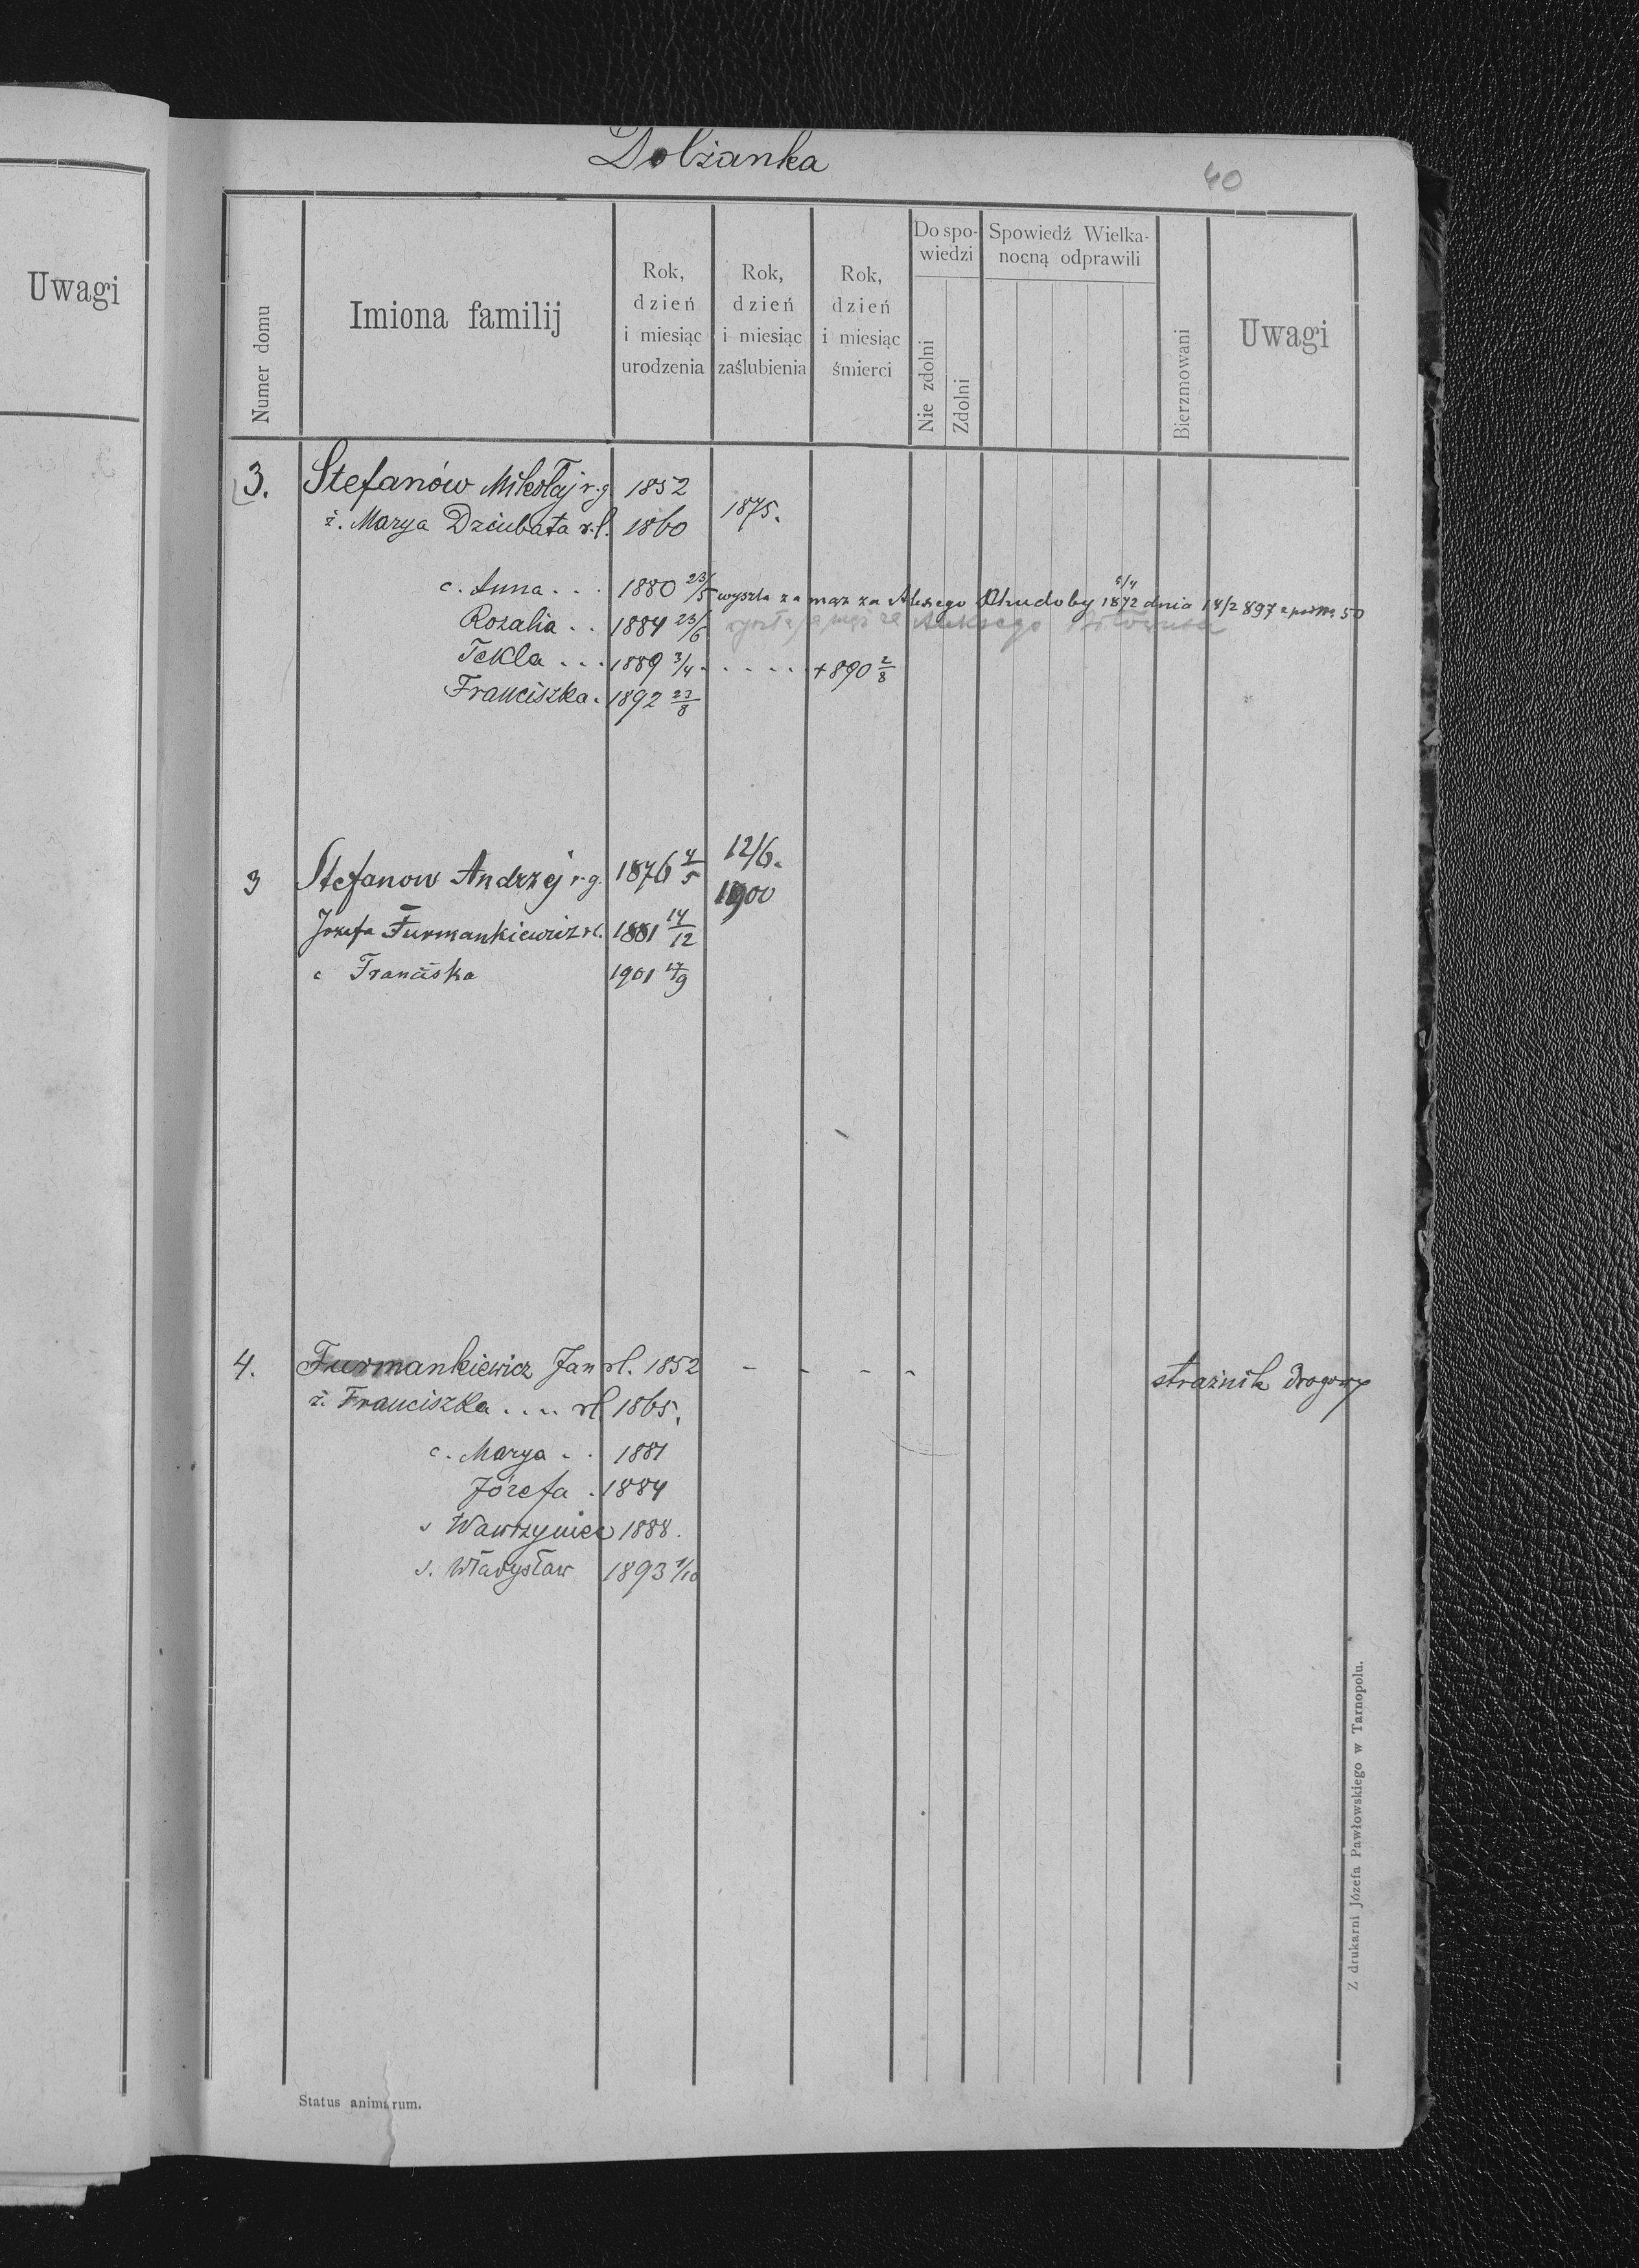 Dolżanka
40
Uwagi
Numer domu
Imiona familij
Rok, dzień i miesiąc urodzenia
Rok, dzień i miesiąc zaślubienia
Rok, dzień i miesiąc śmierci
Do spowiedzi
Nie zdolni
Zdolni
Spowiedź Wielkanocną odprawili
Bierzmowani
Uwagi
3. Stefanów Mikołaj r. g 1852
1875.
ż. Marya Dziubata r. l. 1860
c. Anna . . . 1880 23/5 wyszła za mąż za Alexego Chudoby 5/4 1872 dnia 14/2 897 50
Rozalia . . 1884 23/6
Tekla . . . 1889 3/4 . . . . . . + 890 2/8
Franciszka . 1892 23/8
3 Stefanow Andrzej r. g. 1876 4/5 12/6. 1900
Jozefa Furmankiewicz r l. 1881 14/12
c Franciska 1901 17/9
4. Furmankiewicz Jan rl. 1852 - - - - strażnik drogowy
ż. Franciszka . . . . rl. 1865.
c. Marya . . 1881
Józefa . 1884
s Wawrzyniec 1888.
s. Władysław 1893 1/10
Z drukarni Józefa Pawłowskiego w Tarnopolu.
Status animarum.